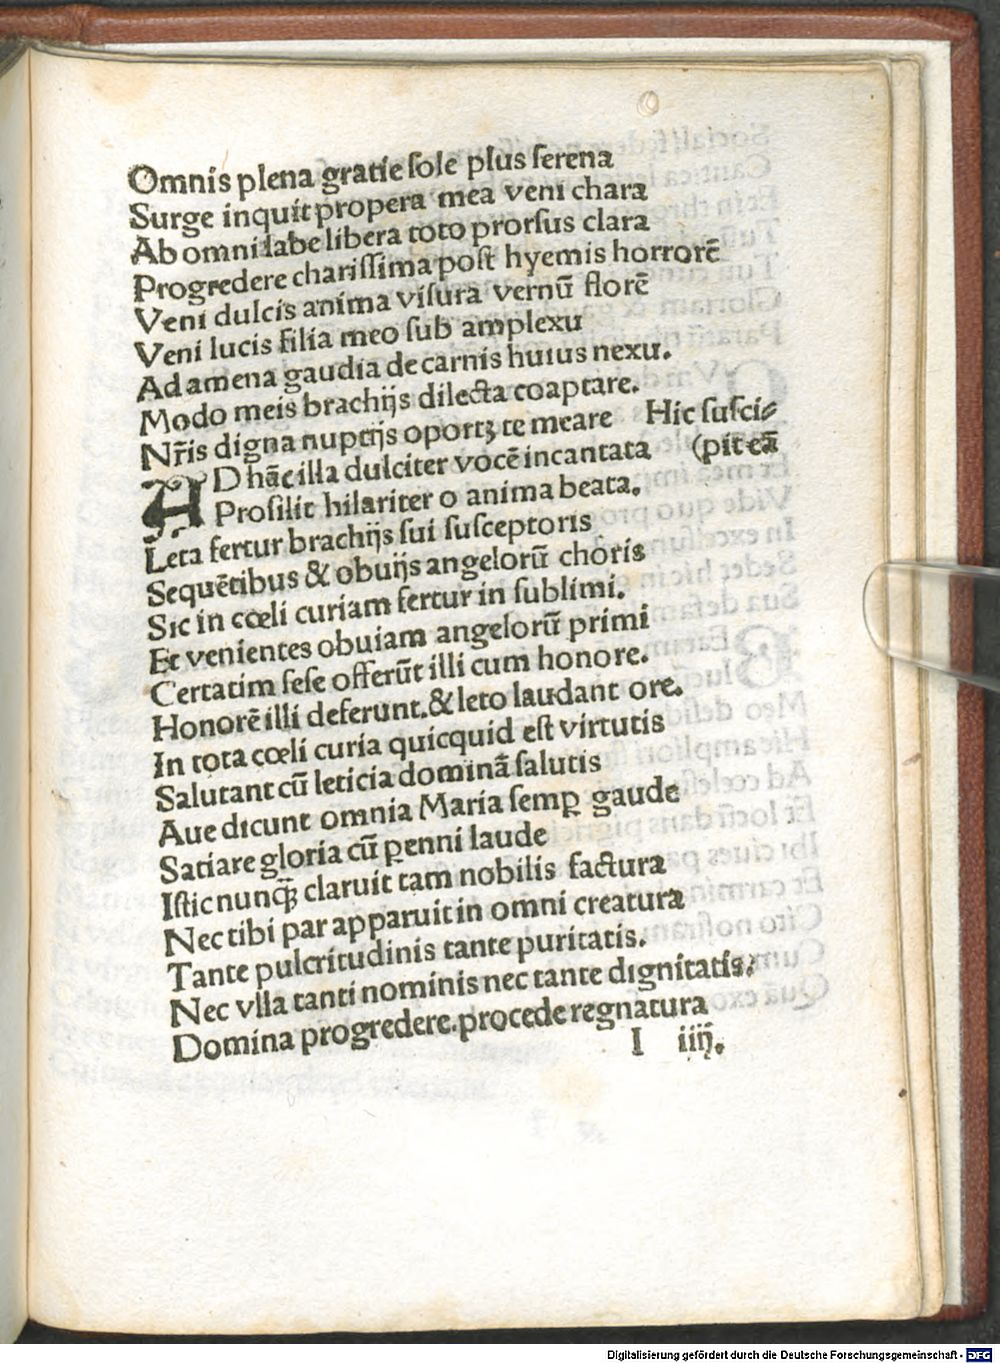 Omnis plena gratie sole plus serena
Surge inquit propera mea veni chara
Ab omni labe libera toto prorsus clara
Progredere charissima post hyemis horrorē
Veni dulcis anima visura vernū florē
Veni lucis filia meo sub amplexu
Ad amena gaudia de carnis huius nexu.
Modo meis brachijs dilecta coaptare.
Nr̄is digna nuptijs oportꝫ te meare Hic susci⸗
AD hāc illa dulciter vocē incantata (pit eā
Prosilit hilariter o anima beata.
Leta fertur brachijs sui susceptoris
Sequētibus & obuijs angelorū choris
Sic in cœli curiam fertur in sublimi.
Et venientes obuiam angelorū primi
Certatim sese offerūt illi cum honore.
Honorē illi deferunt.& leto laudant ore.
In tota cœli curia quicquid est virtutis
Salutant cū leticia dominā salutis
Aue dicunt omnia Maria semꝑ gaude
Satiare gloria cū ꝑenni laude
Istic nunqꝫ̄ claruit tam nobilis factura
Nec tibi par apparuit in omni creatura
Tante pulcritudinis tante puritatis.
Nec vlla tanti nominis nec tante dignitatis.
Domina progredere.procede regnatura
I iiij.
Digitalisierung gefördert durch die Deutsche Forschungsgemeinschaft - DFG